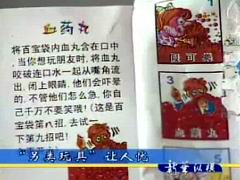 血药丸
将百宝袋内血丸含在口中
,当你想玩朋友时,将血丸
咬破连口水一起从嘴角流
出,闭上眼睛,他们会吓晕
的,不管他们怎么急,你自
己千万不要笑哦!(这是百
宝袋第八招,去试一
下第九招吧!
5
血药丸
“另类玩具”让人忧